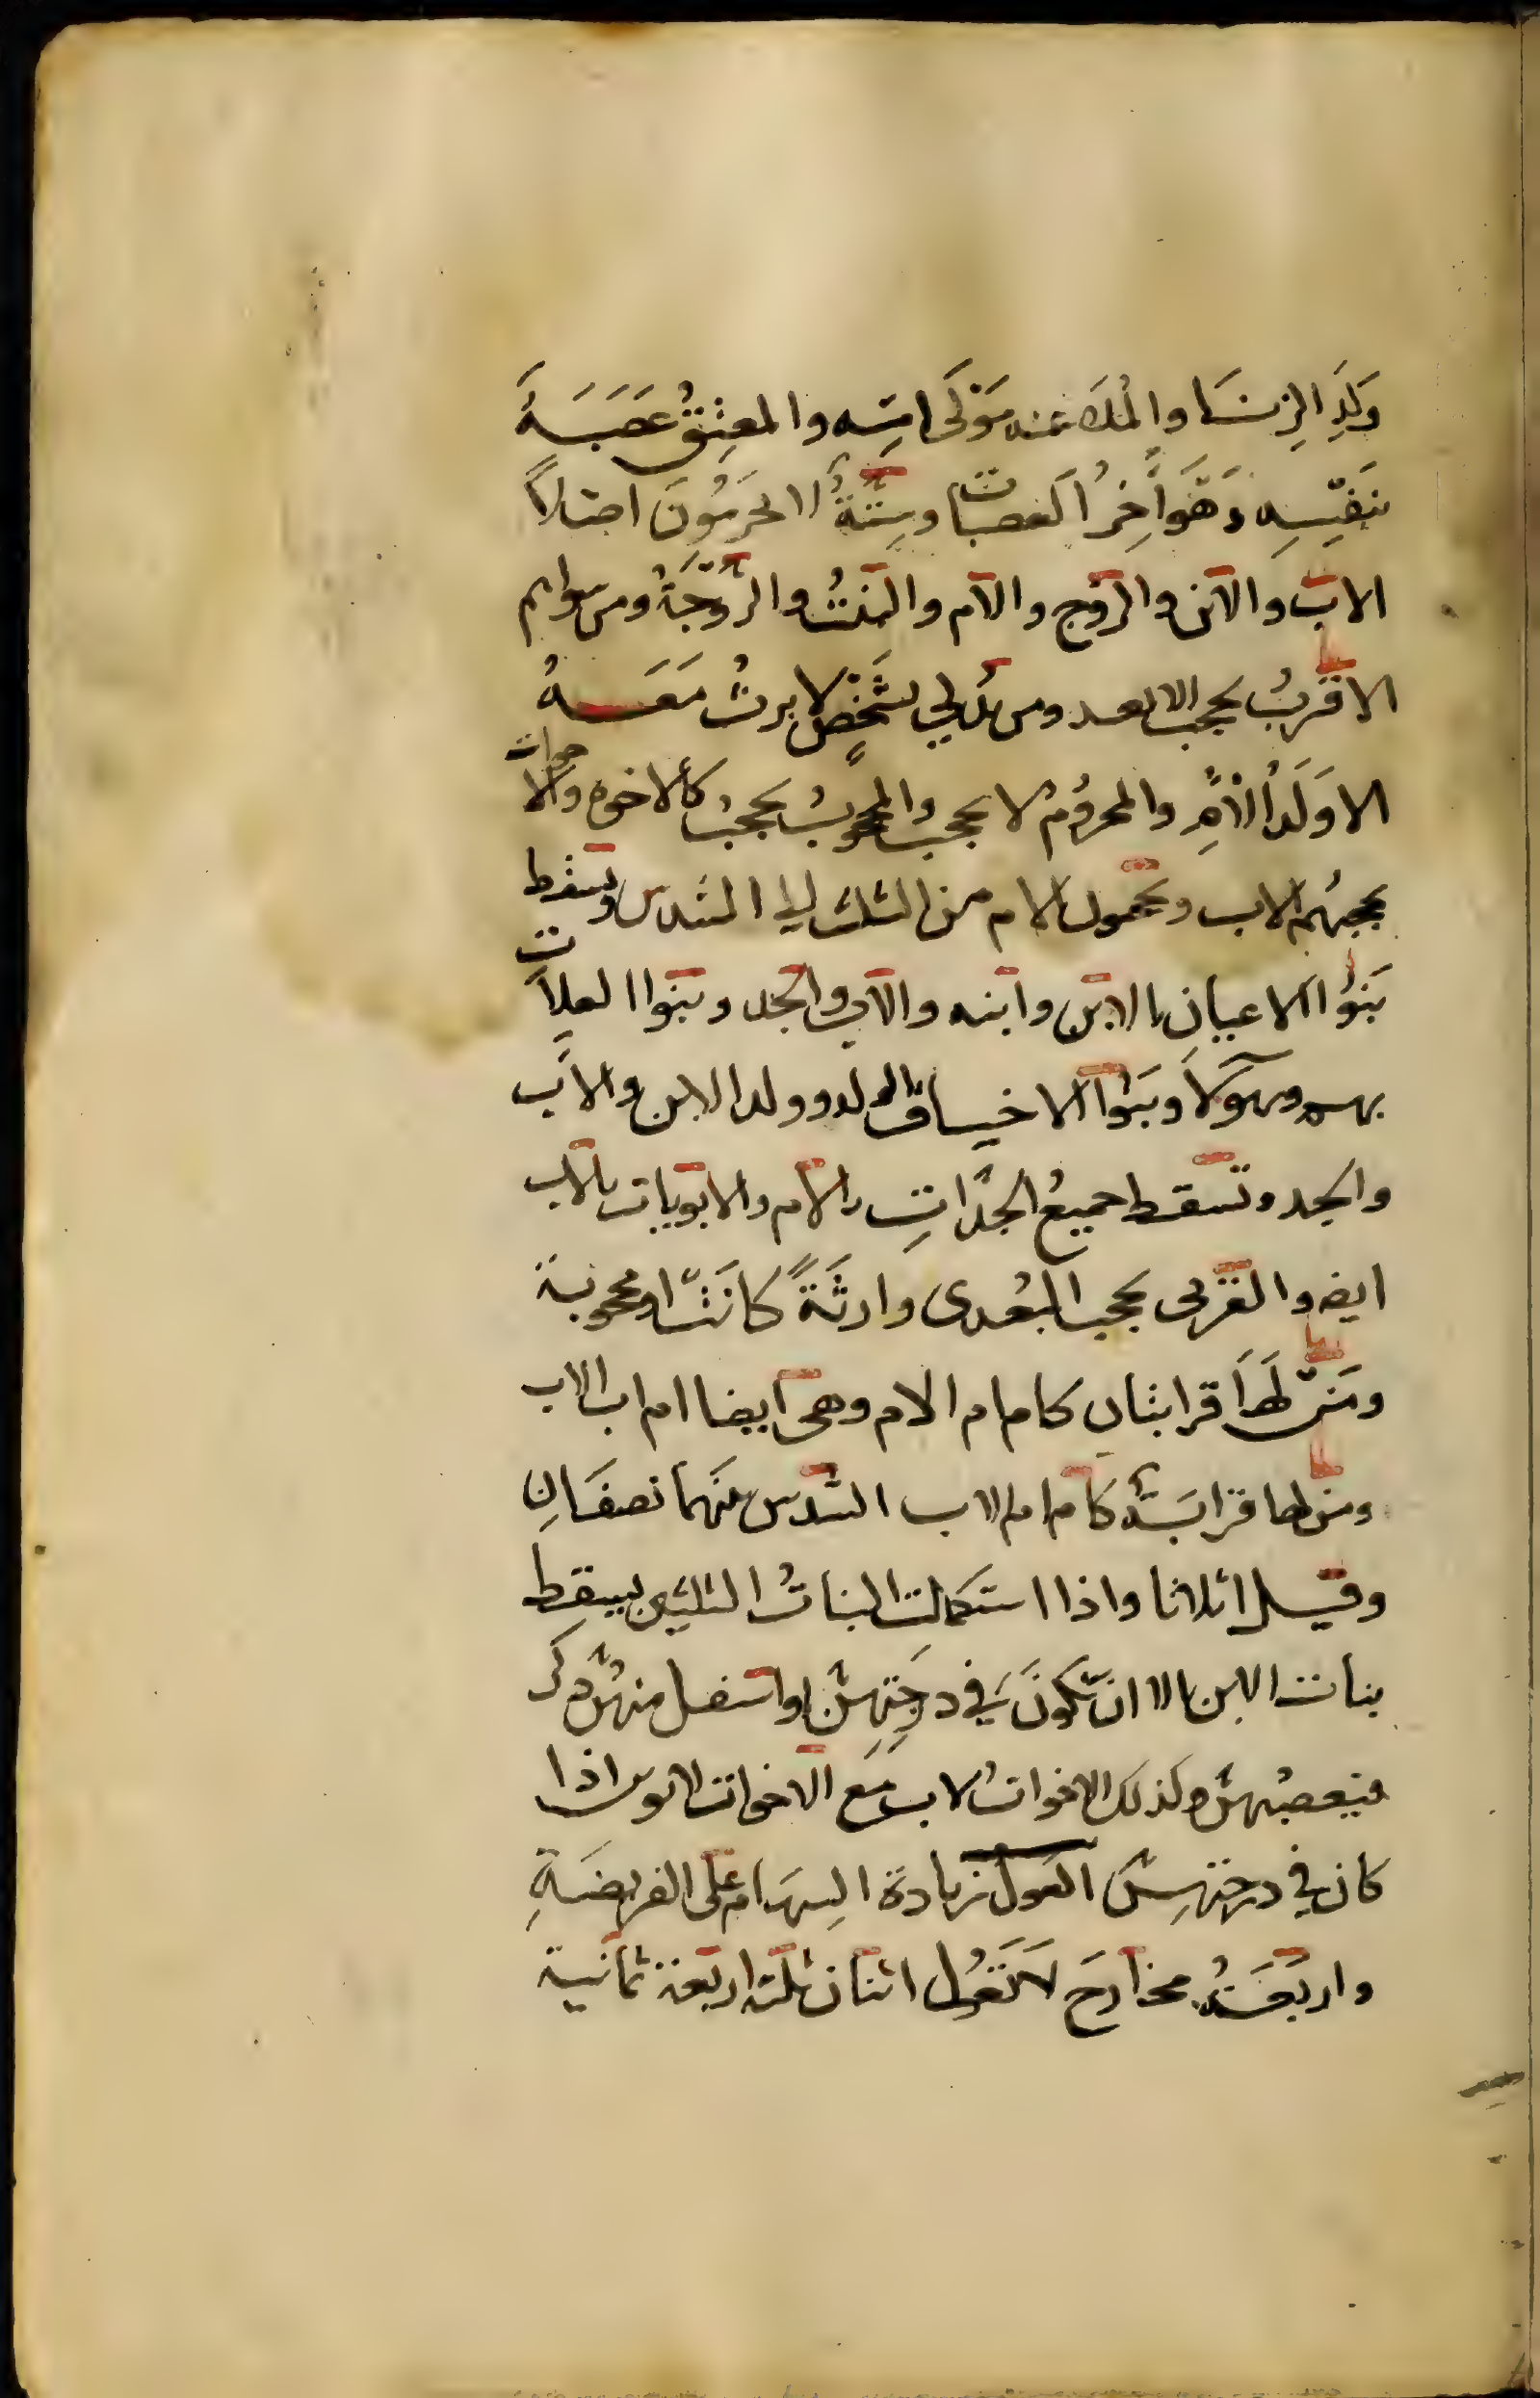 وَلَدِ الزنَا والملاعنه مَوْلَى امّه والمعتِقُ عَصَبَةٌ
بنفسِه وَهُوَ آخِرُ العصبات وستّةٌ لا يحرمُونَ اصلاً
الاب والابن والزوج والام والبنتُ والزّوجَةُ ومن سواهم
الاقربُ يحجب الابعد ومن يُدلي بشَخْصٍ لا يرثُ مَعَـهُ
الا وَلَدُ الأمِّ والمحرُومُ لا يحجب والمحجوبُ يحجبُ كالاخوة والاخوات
يحجبهُم الاب ويحجبون الام من الثلث الى السُّدس ويسقط
بَنُوا الاعيانِ بالابن وابنه والاب والجد وبنوا العلات
بهم وبهؤلاَ وبَنوا الاخياف بالولد وولد الابن والاب
والجد وتسقط جميعُ الجدّاتِ بالام والابويات بالاب
ايضا والقربى تحجب البُعدى وارثَةً كانَتْ او محجوبة
ومَنْ لَهَا قرابتان كام ام الام وهى ايضا ام اب الاب
ومن لها قرابَةٌ كام ام الاب السّدس بينَهما نصفَانِ
وقيل اثلاثا واذا استكملت البناتُ الثلثين يسقط
بنات الابن الا ان يكونَ في درجتِهنّ او اسفل منهُنّ ذكر
فيعصبهنّ وكذلك الاخواتُ لاب مَع الاخوات لابوين اذا
كان في درجتهِنّ العول زيادة السِهَام على الفريضَةِ
واربعَةُ مخارجَ لا تَعُول اثنان ثلثه اربعة ثمانية